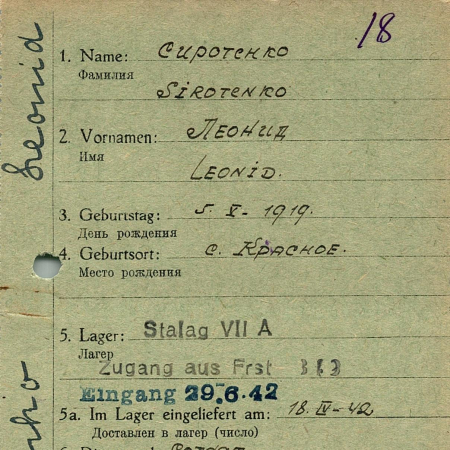 18
Leonid
1. Name: Сиротенко
Фамилия
SIROTENKO
2. Vornamen: Леонид
Имя
LEONID.
3. Geburtstag: 5. V - 1919.
День рождения
4. Geburtsort: с. Красное.
Место рождения
5. Lager: Stalag VII A
Лагер
Zugang aus Frst
Eingang 29.6.42
5a. Im Lager eingeliefert am: 18. IV - 42
Доставлен в лагер (число)